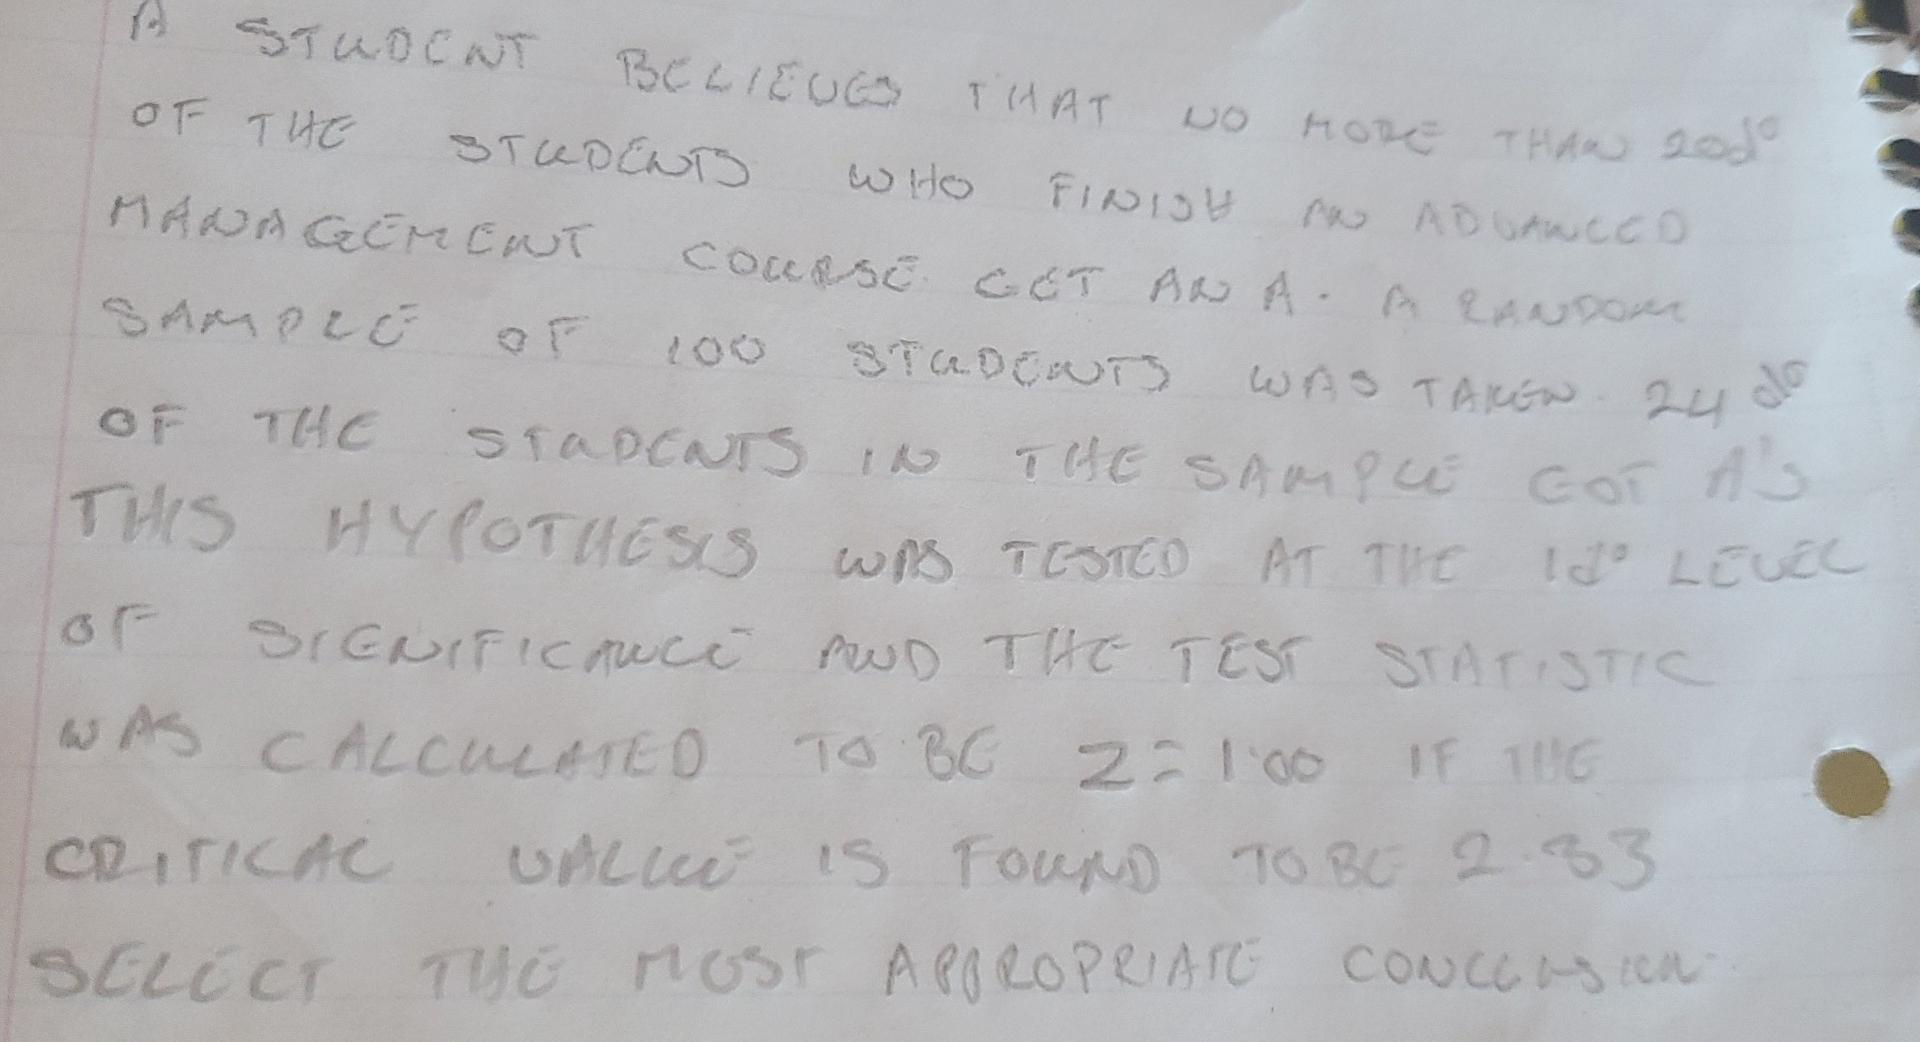 A STUDENT BELIEVES THAT NO MORE THAN 20%
OF THE STUDENTS WHO FINISH AN ADVANCED
MANAGEMENT COURSE GET AN A. A RANDOM
SAMPLE OF 100 STUDENTS WAS TAKEN. 24%
OF THE STUDENTS IN THE SAMPLE GOT A'S
THIS HYPOTHESIS WAS TESTED AT THE 1% LEVEL
OF SIGNIFICANCE AND THE TEST STATISTIC
WAS CALCULATED TO BE Z = 1.00 IF THE
CRITICAL VALUE IS FOUND TO BE 2.33
SELECT THE MOST APPROPRIATE CONCLUSION.